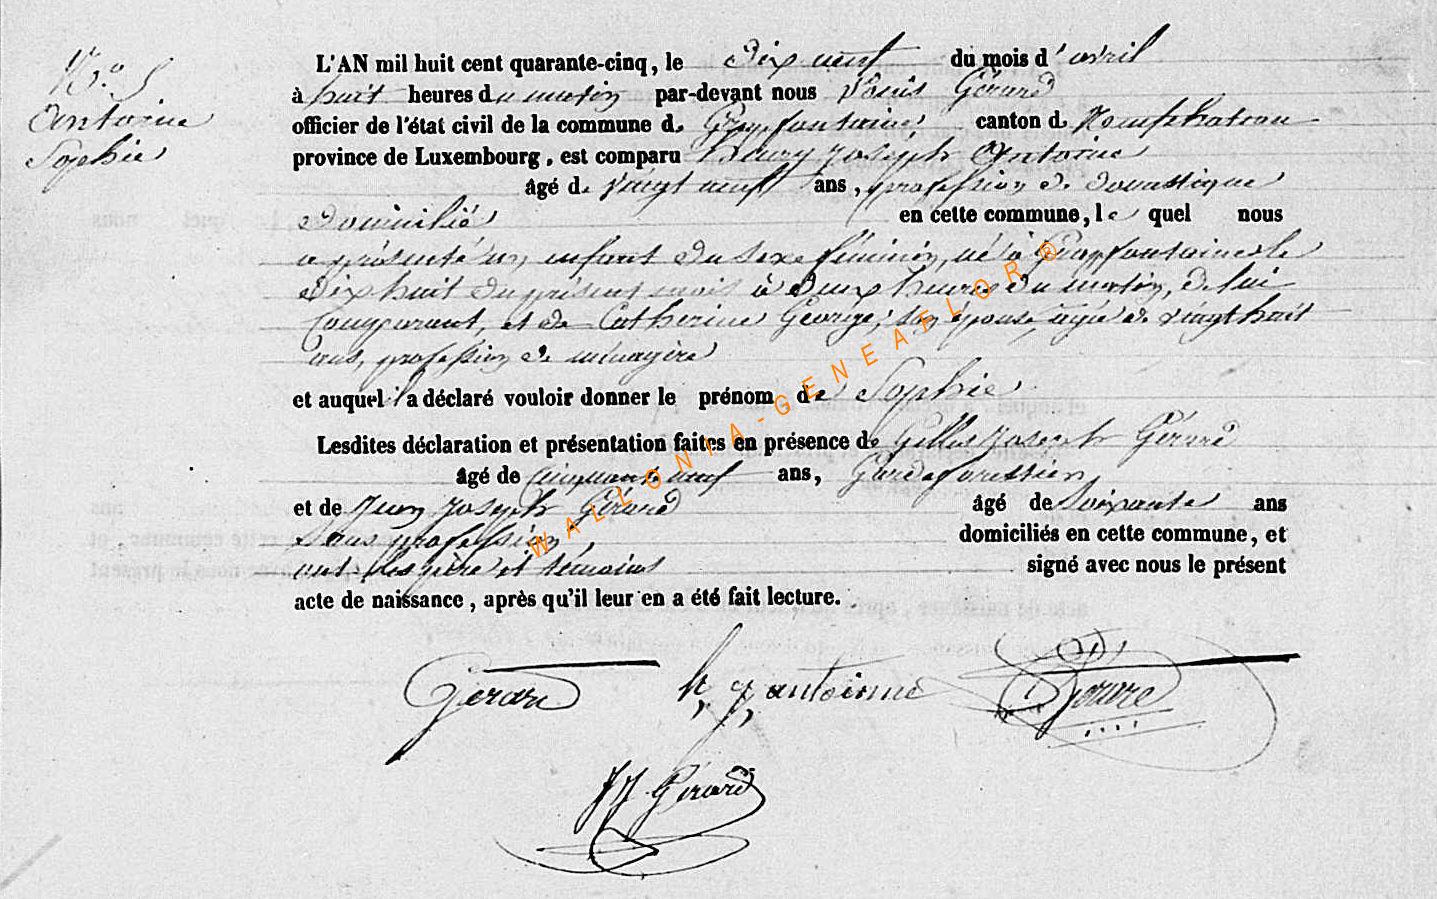 N° 5
Antoine
Sophie
L'AN mil huit cent quarante-cinq, le Dix neuf du mois d'avril
à huit heures du matin par-devant nous Louis Gérard
officier de l'état civil de la commune de Grapfontaine, canton de Neufchateau
province de Luxembourg, est comparu Henry Joseph Antoine
âgé de vingt neuf ans, profession de domestique
Domicilié en cette commune, le quel nous
a présenté un enfant du sexe féminin, né à Grapfontaine le
Dix huit du présent mois à Deux heures du matin, de lui
Comparant, et de Catherine George, son épouse, agée de vingt huit
ans, profession de ménagère
et auquel il a déclaré vouloir donner le prénom de Sophie
Lesdites déclaration et présentation faites en présence de Gilles Joseph Gérard
âgé de Cinquante neuf ans, Garde forestier
et de Jean Joseph Gérard âgé de Soixante ans
Sans profession, domiciliés en cette commune, et
ont les père et témoins signé avec nous le présent
acte de naissance, après qu'il leur en a été fait lecture.
Gérard h, j, antoinne Gérard
JJ Gérard
WALLONIA-GENEAFLOR ®